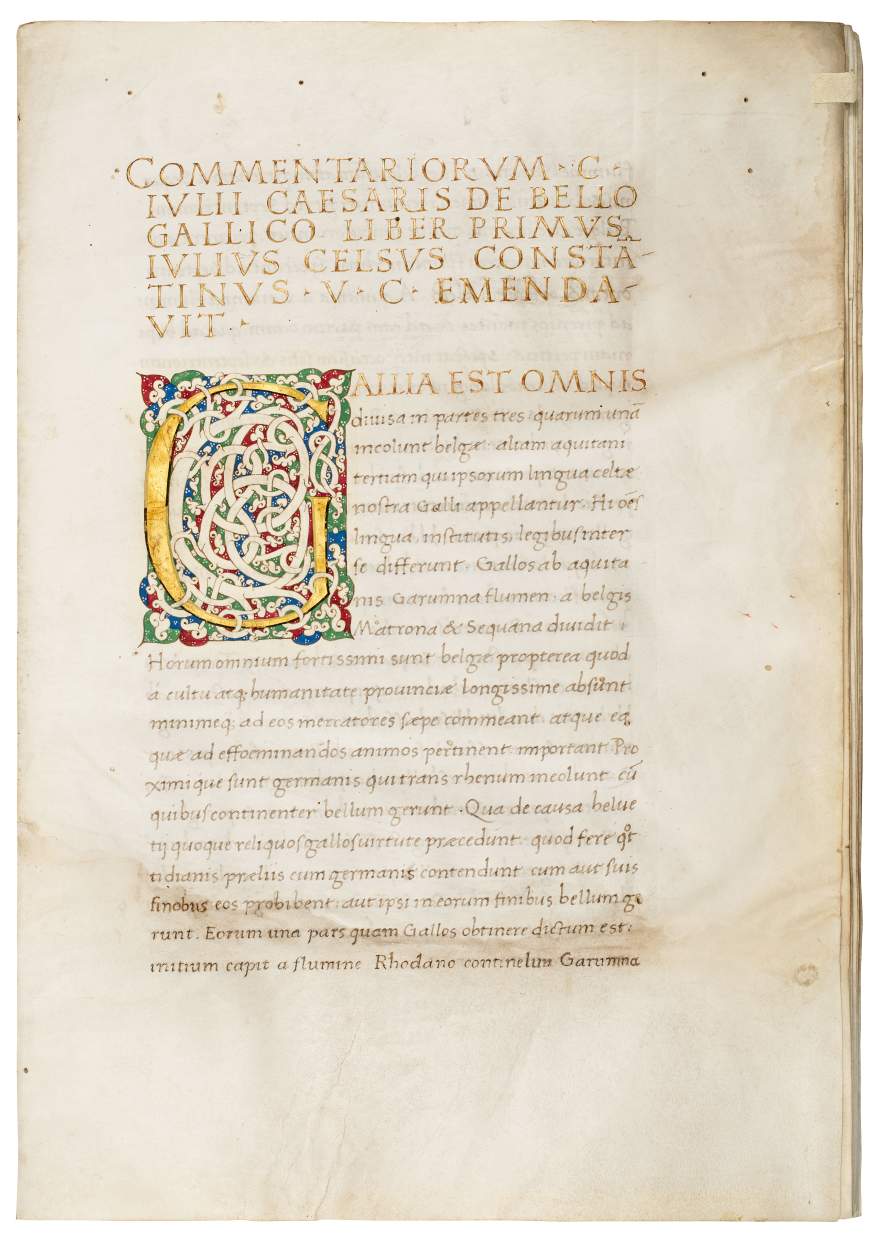 COMMENTARIORVM · C ·
IVLII CAESARIS DE BELLO
GALLICO LIBER PRIMVS
IVLIVS CELSVS CONSTA-
TINVS · V · C · EMENDA-
VIT ·
GALLIA EST OMNIS
diuisa in partes tres quarum unā
incolunt belgæ aliam aquitani
tertiam qui ipsorum lingua celtæ
nostra Galli appellantur. Hi oēs
lingua, institutis, legibus inter
se differunt. Gallos ab aquita
nis Garumna flumen. a belgis
Matrona & Sequana diuidit ;
Horum omnium fortissimi sunt belgæ propterea quod
a cultu atq; humanitate prouinciæ longissime absunt
minimeq; ad eos mercatores sæpe commeant. atque ea
quæ ad effoeminandos animos pertinent important Pro
ximique sunt germanis qui trans rhenum incolunt cū
quibus continenter bellum gerunt. Qua de causa helue
tij quoque reliquos gallos uirtute præcedunt. quod fere qͦt
tidianis præliis cum germanis contendunt cum aut suis
finobus eos prohibent. aut ipsi in eorum finibus bellum ge
runt. Eorum una pars quam Gallos obtinere dictum est:
initium capit a flumine Rhodano continetur Garumna